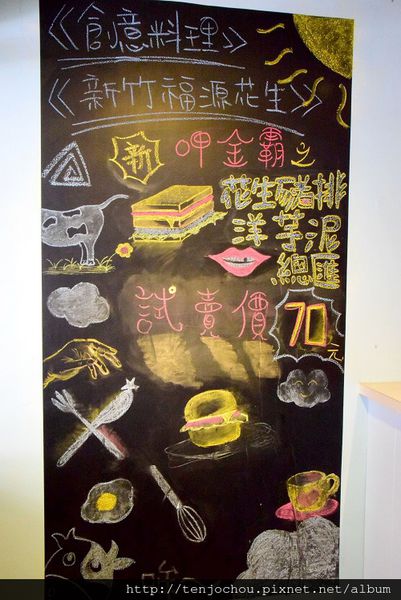 《創意料理》
《新竹福源花生》
新 呷金霸之
花生豬排
洋芋泥
總匯
試賣價 70元
http://tenjochou.pixnet.net/album